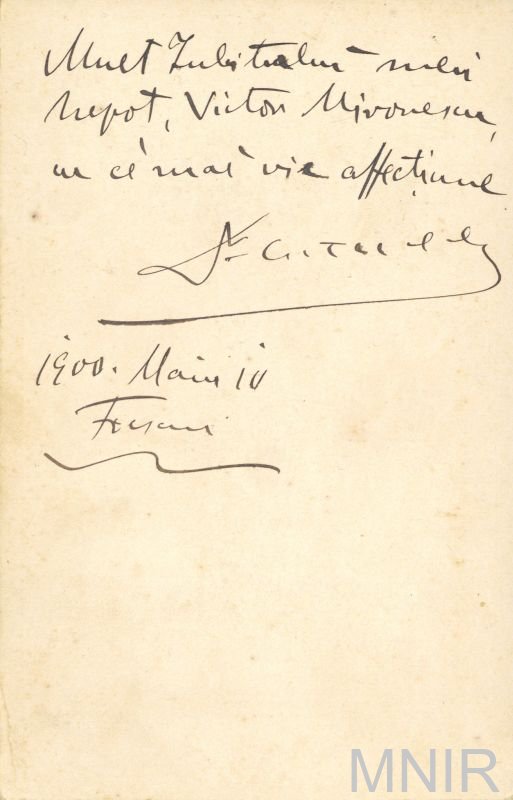 Mult Iubitului meu
nepot, Victor Mironescu,
cu cé mai vie affecțiune
1900. Maiu 10
MNIR